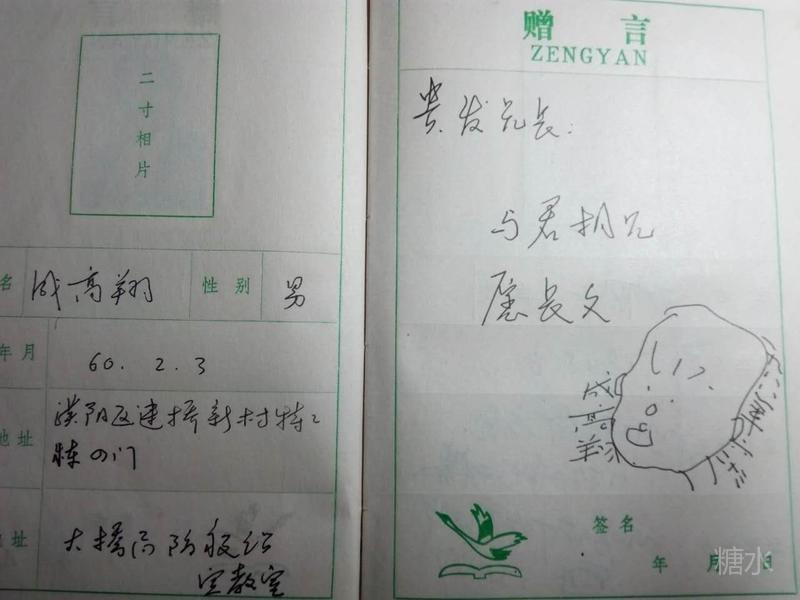 二寸相片
名 成高翔 性别 男
年月 60.2.3
地址 汉阳区建桥新村特2
栋04门
址 大桥局阶级
室教室
赠言
ZENGYAN
贵发兄长:
与君相见
愿长久
成高翔
签名
年 月 日
糖水